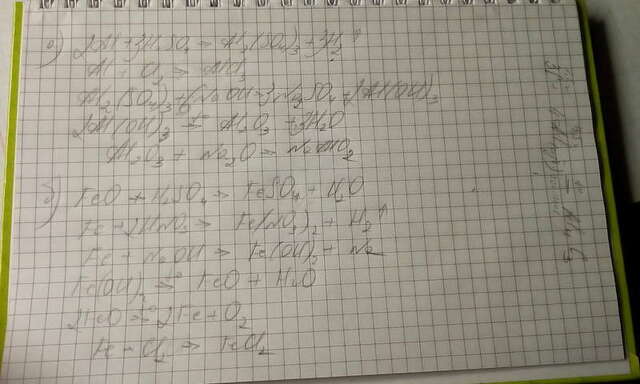 а) 2Al + 3H2SO4 → Al2(SO4)3 + 3H2↑
Al + O2 →
Al2(SO4)3 + 6NaOH → 3Na2SO4 + 2Al(OH)3
2Al(OH)3 = Al2O3 + 3H2O
Al2O3 + Na2O = NaAlO2
б) FeO + H2SO4 → FeSO4 + H2O
Fe + 2HNO3 → Fe(NO3)2 + H2↑
Fe + NaOH → Fe(OH)2 + Na
Fe(OH)2 → FeO + H2O
2FeO = 2Fe + O2
Fe + Cl2 → FeCl2